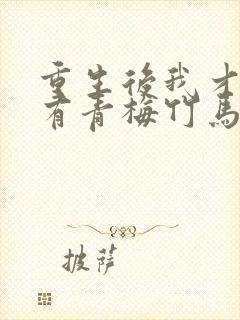 重生後我才
有青梅竹馬
披薩